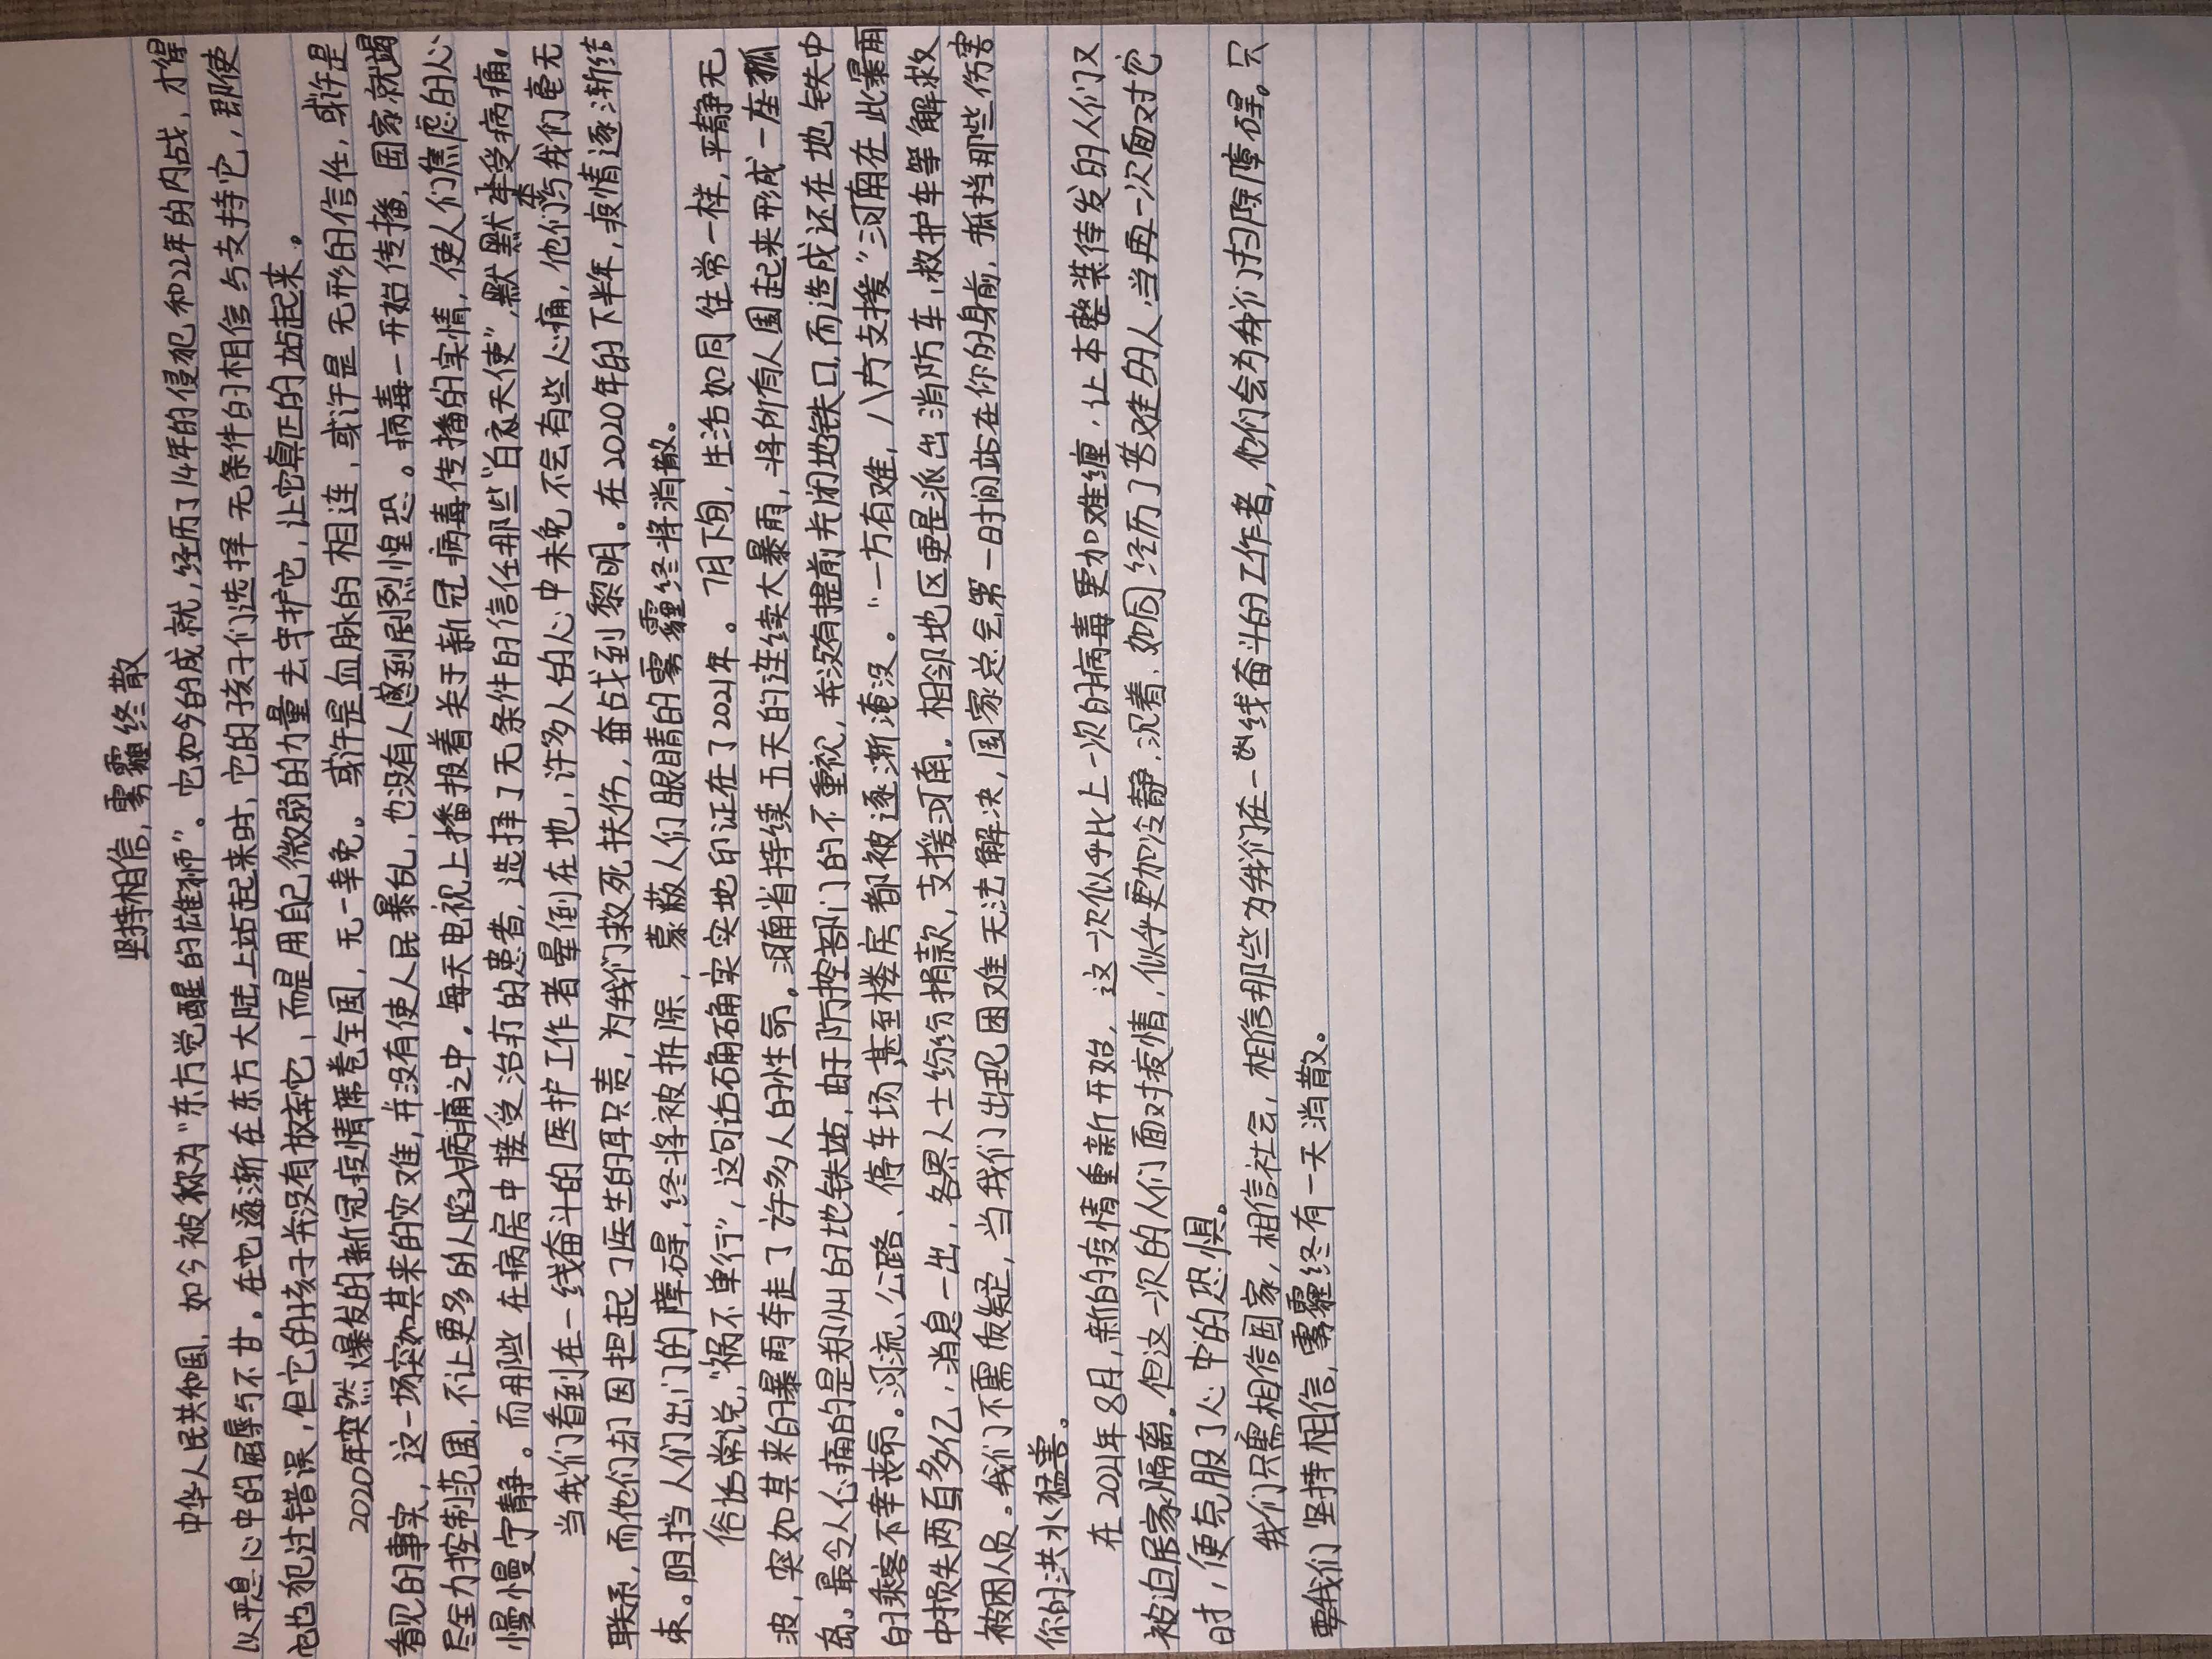 坚持相信,雾霾终散
中华人民共和国,如今被称为“东方觉醒的雄狮”。它如今的成就,经历了14年的侵犯和22年的内战,才得
以平息心中的屈辱与不甘。在它逐渐在东方大陆上站起来时,它的孩子们选择无条件的相信与支持它,即使
它也犯过错误,但它的孩子并没有放弃它,而是用自己微弱的力量去守护它,让它真正的站起来。
2020年突然爆发的新冠疫情席卷全国,无一幸免。或许是血脉的相连,或许是无形的信任,或许是
看见的事实,这一场突如其来的灾难,并没有使人民暴乱,也没有人感到剧烈惶恐。病毒一开始传播,国家就竭
尽全力控制范围,不让更多的人陷入病痛之中。每天电视上播报着关于新冠病毒传播的实情,使人们焦虑的心
慢慢宁静。而那些在病房中接受治疗的患者,选择了无条件的信任那些“白衣天使”,默默承受病痛。
当我们看到在一线奋斗的医护工作者晕倒在地,许多人的心中未免不会有些心痛,他们与我们毫无
联系,而他们却因担起了医生的职责,为我们救死扶伤,奋战到黎明。在2020年的下半年,疫情逐渐结
束。阻挡人们出门的障碍,终将被拆除,蒙蔽人们眼睛的雾霾终将消散。
俗话常说,“祸不单行”,这句话确确实实地印证在了2021年。7月下旬,生活如同往常一样,平静无
波,突如其来的暴雨夺走了许多人的性命。河南省持续五天的连续大暴雨,将所有人围起来形成一座孤
岛。最令人心痛的是郑州的地铁站,由于防控部门的不重视,并没有提前关闭地铁口,而造成还在地铁中
的乘客不幸丧命。河流、公路、停车场,甚至楼房都被逐渐淹没。“一方有难,八方支援”河南在此暴雨
中损失两百多亿,消息一出,各界人士纷纷捐款,支援河南。相邻地区更是派出消防车,救护车等解救
被困人员。我们不需质疑,当我们出现困难无法解决,国家总会第一时间站在你的身前,抵挡那些伤害
你的洪水猛兽。
在2021年8月,新的疫情重新开始,这一次似乎比上一次的病毒更加难缠,让本整装待发的人们又
被迫居家隔离。但这一次的人们面对疫情,似乎更加冷静,沉着,如同经历了苦难的人,当再一次面对它
时,便克服了心中的恐惧。
我们只需相信国家,相信社会,相信那些为我们在一线奋斗的工作者,他们会为我们扫除障碍。只
要我们坚持相信,雾霾终有一天消散。